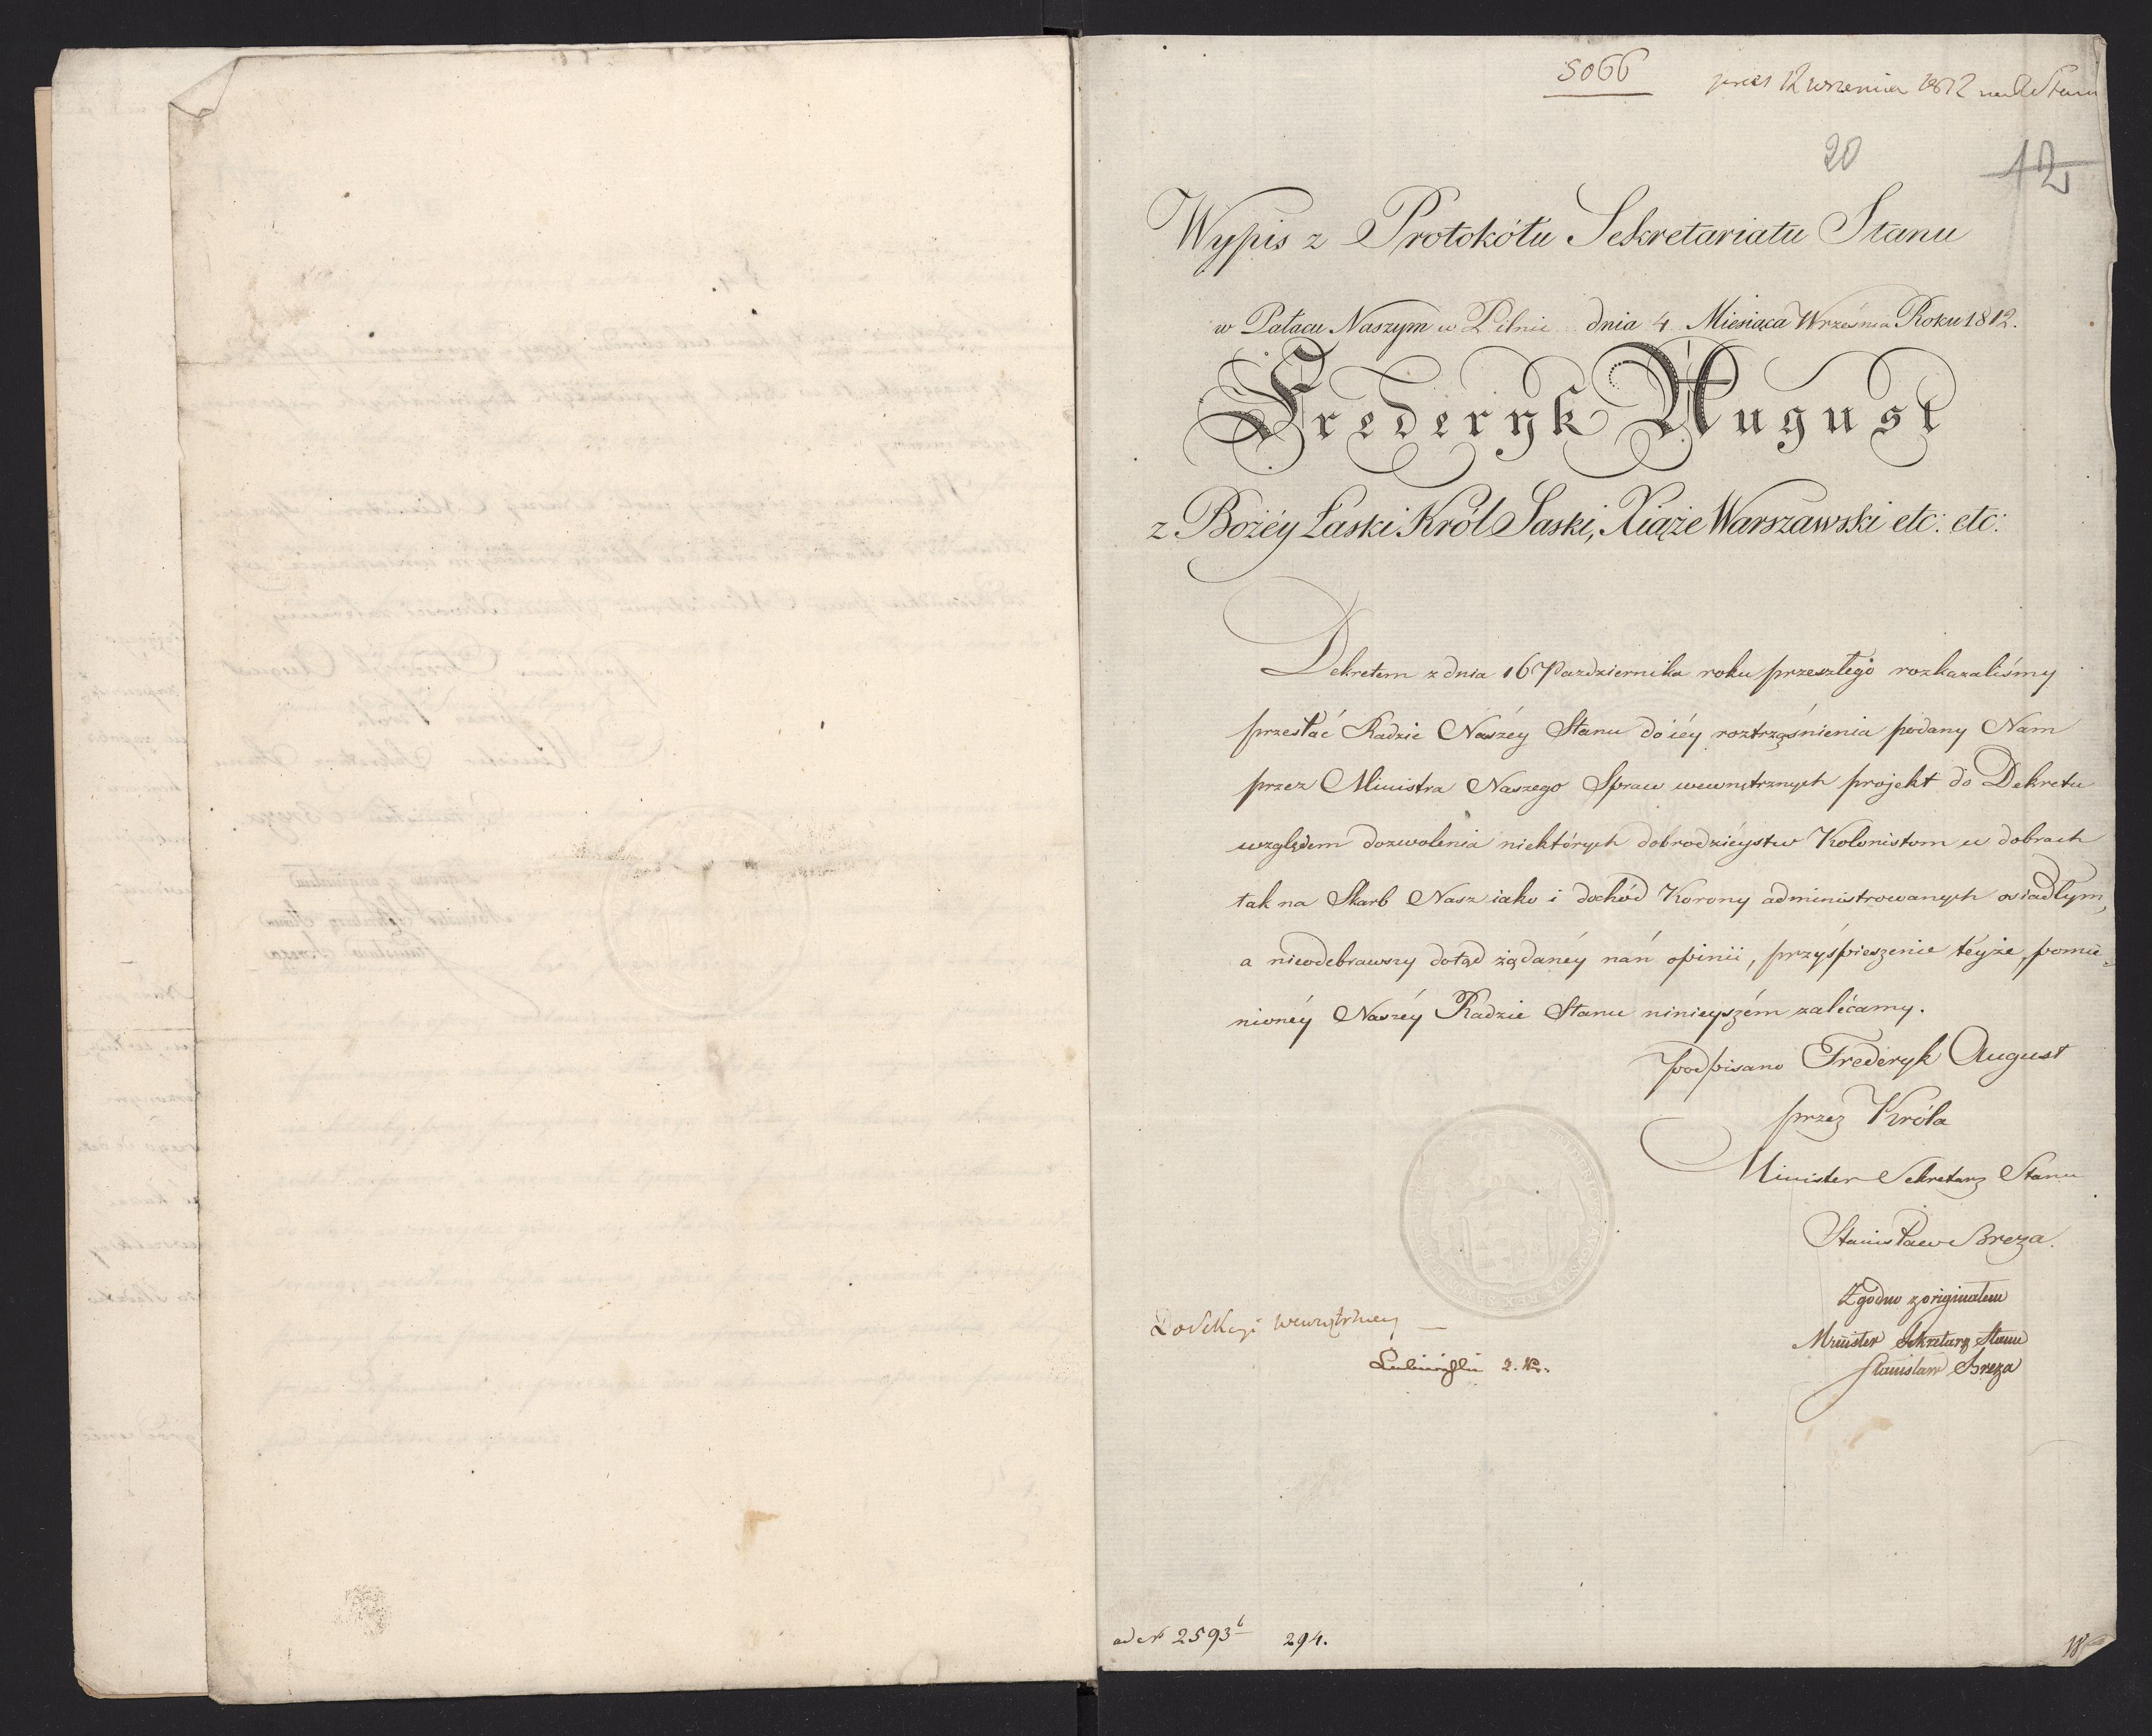 5066
prez 12 wrzenia 1812 na R Stanu
20
12
Wypis z Protokółu Sekretariatu Stanu
w Pałacu Naszym w Pilnie dnia 4 Miesiąca Września Roku 1812.
Frederyk August
z Bożéy Łaski Król Saski, Xiąże Warszawski etc: etc:
Dekretem z dnia 16 Pazdziernika roku przeszłego rozkazaliśmy
przesłać Radzie Naszéy Stanu do iéy roztrząśnienia podany Nam
przez Ministra Naszego Spraw wewnętrznych projekt do Dekretu
względem dozwolenia niektórych dobrodzieystw Kolonistom w dobrach
tak na Skarb Nasz iako i dochód Korony administrowanych osiadłym,
a nieodebrawszy dotąd żądanéy nań opinii, przyśpieszenie téyże, pomie-
nionéy Naszéy Radzie Stanu ninieyszém zalécamy.
podpisano Frederyk August
przez Króla
Minister Sekretarz Stanu
Stanisław Breza.
Zgodno z originałem
Minister Sekretarz Stanu
Stanisław Breza
Do Sekcyi wewnętrzney
ad N 2593 b 294.
18